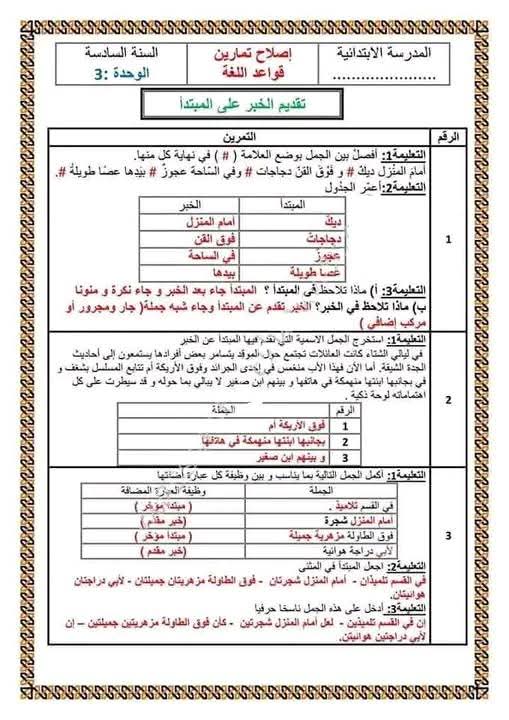 المدرسة الابتدائية
......................
إصلاح تمارين
قواعد اللغة
السنة السادسة
الوحدة :3
تقديم الخبر على المبتدأ
الرقم التمرين
1
التعليمة1: أفصلُ بين الجمل بوضع العلامة ( # ) في نهاية كل منها.
أمامَ المنْزل ديكٌ # و فَوْقَ القنّ دجاجات # وفي السّاحة عجوزٌ # بيَدِها عصًا طويلةٌ #.
التعليمة2: أعمّر الجدْول
المبتدأ الخبر
ديكٌ أمام المنزل
دجاجاتٌ فوق القن
عجوزٌ في الساحة
عَصًا طويلة بيدها
التعليمة3: أ) ماذا تلاحظ في المبتدأ ؟ المبتدأ جاء بعد الخبر و جاء نكرة و منونا
ب) ماذا تلاحظ في الخبر؟ الخبر تقدم عن المبتدأ وجاء شبه جملة( جار ومجرور أو
مركب إضافي )
2
التعليمة1: استخرج الجمل الاسمية التي تقدم فيها المبتدأ عن الخبر
في ليالي الشتاء كانت العائلات تجتمع حول الموقد يتسامر بعض أفرادها يستمعون إلى أحاديث
الجدة الشيقة. أما الآن فهذا الأب منغمس في إحدى الجرائد وفوق الأريكة أم تتابع المسلسل بشغف و
في بجانبها ابنتها منهمكة في هاتفها و بينهم ابن صغير لا يبالي بما حوله و قد سيطرت على كل
اهتماماته لوحة ذكية .
الرقم الجملة
1 فوق الأريكة أم
2 بجانبها ابنتها منهمكة في هاتفها
3 و بينهم ابن صغير
3
التعليمة1: أكمل الجمل التالية بما يناسب و بين وظيفة كل عبارة أضفتها
الجملة وظيفة العبارة المضافة
في القسم تلاميذ . ( مبتدأ مؤخر )
أمام المنزل شجرة (خبر مقدم )
فوق الطاولة مزهرية جميلة ( مبتدأ مؤخر )
لأبي دراجة هوائية (خبر مقدم )
التعليمة2: اجعل المبتدأ في المثنى
في القسم تلميذان - أمام المنزل شجرتان - فوق الطاولة مزهريتان جميلتان - لأبي دراجتان
هوائيتان.
التعليمة3: أدخل على هذه الجمل ناسخا حرفيا
إن في القسم تلميذين - لعل أمام المنزل شجرتين - كأن فوق الطاولة مزهريتين جميلتين – إن
لأبي دراجتين هوائيتن.